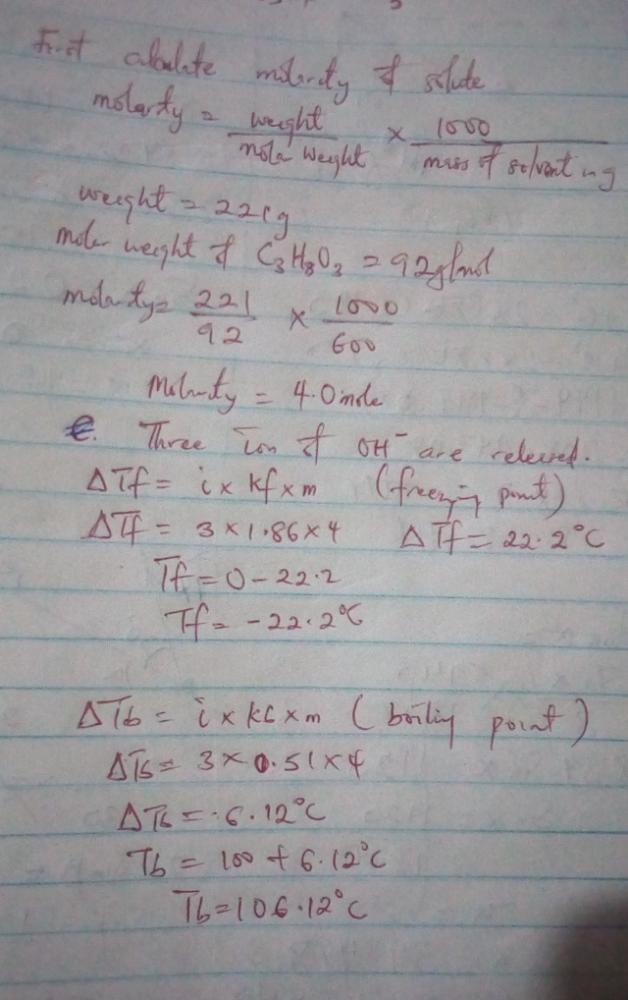 First calculate molarity of solute
molarity = weight / mola weight × 1000 / mass of solvent in g
weight = 221g
molar weight of C3H8O3 = 92g/mol
molarty = 221/92 × 1000/600
Molarity = 4.0 mole
Three ion of OH⁻ are released.
ΔTf = i x kf x m (freezing point)
ΔTf = 3 x 1.86 x 4 ΔTf = 22.2°C
Tf = 0 - 22.2
Tf = -22.2°C
ΔTb = i x kb x m (boiling point)
ΔTb = 3 x 0.51 x 4
ΔTb = 6.12°C
Tb = 100 + 6.12°C
Tb = 106.12°C